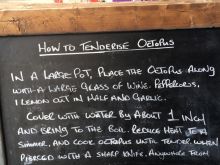 HOW TO TENDERISE OCTOPUS
IN A LARGE POT, PLACE THE OCTOPUS ALONG
WITH A LARGE GLASS OF WINE. PEPPERCORNS,
1 LEMON CUT IN HALF AND GARLIC.
COVER WITH WATER BY ABOUT 1 INCH
AND BRING TO THE BOIL. REDUCE HEAT TO A
SIMMER, AND COOK OCTOPUS UNTIL TENDER WHEN
PIERCED WITH A SHARP KNIFE. ANYWHERE FROM